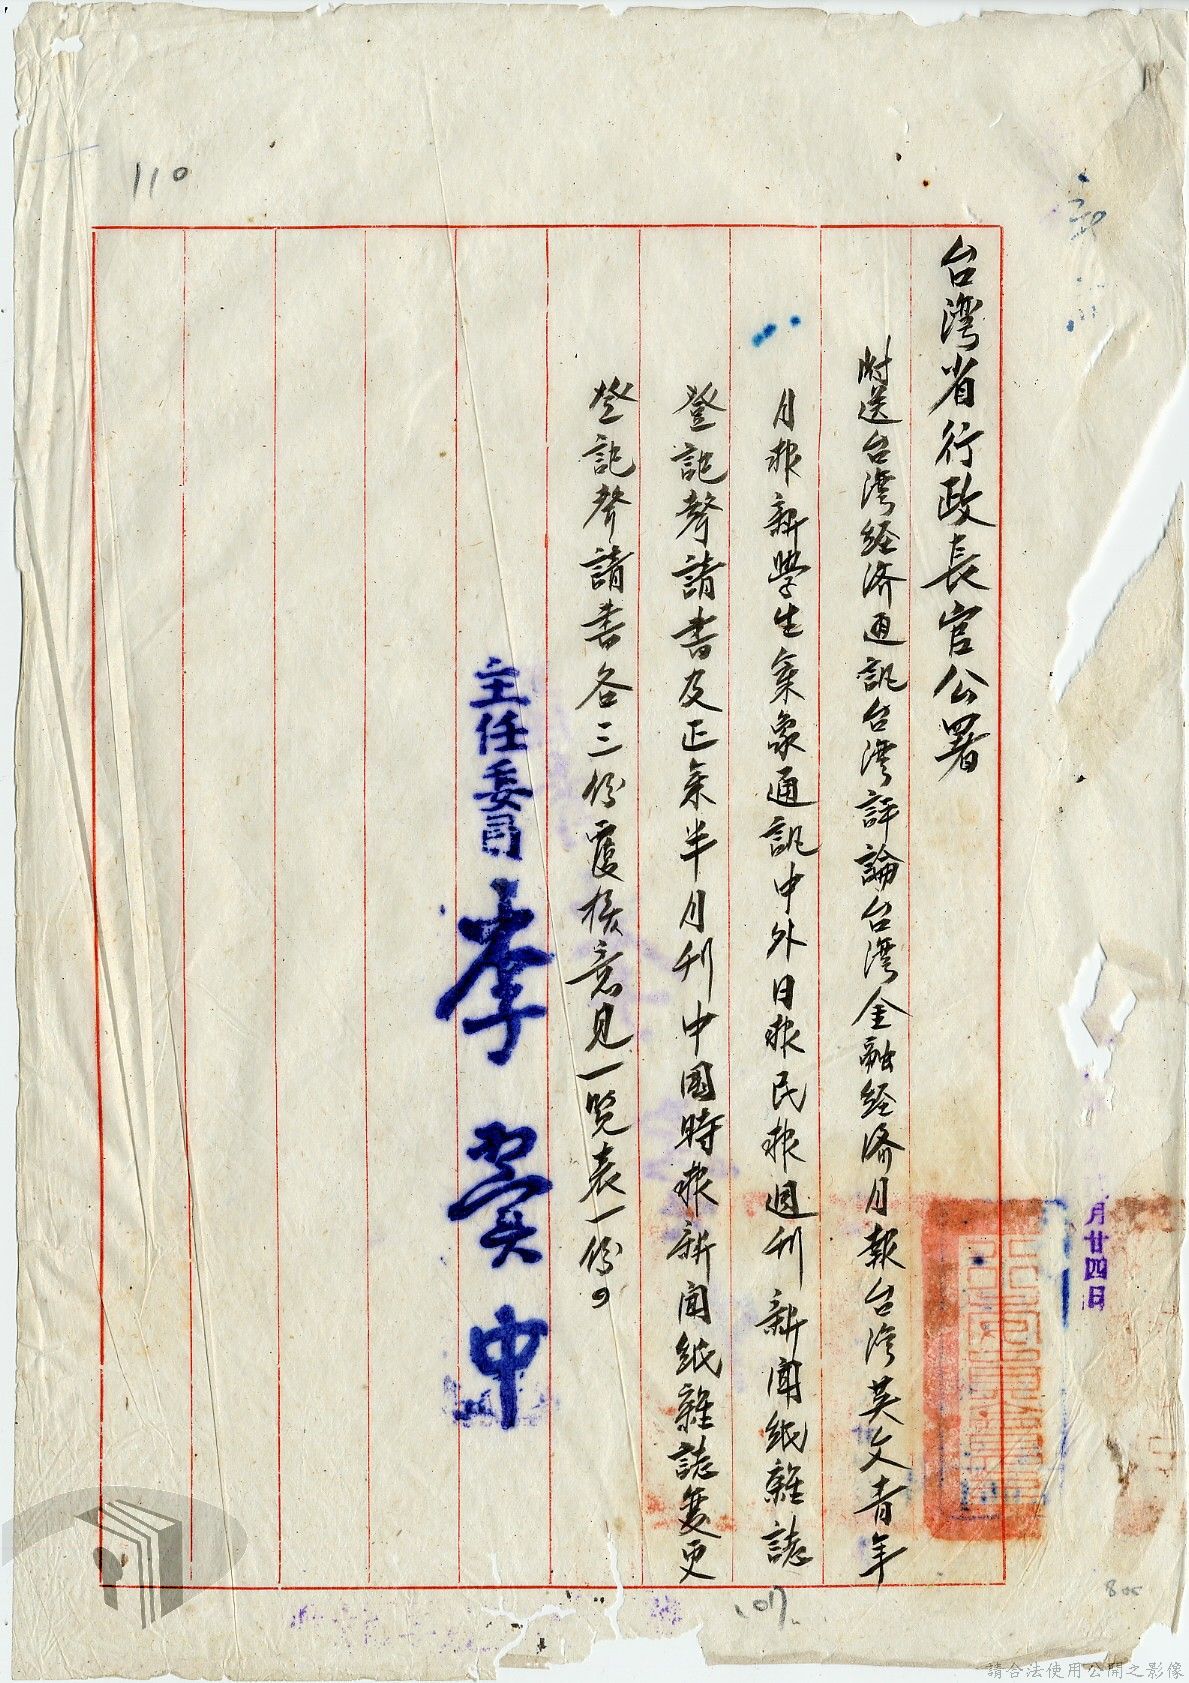 110
台湾省行政長官公署
附送台湾経済通訊台湾評論台湾金融経済月報台湾英文青年
月報新學生氣象通訊中外日報民報週刊新聞紙雜誌
登記聲請書及正氣半月刊中國時報新聞紙雜誌變更
登記聲請書各三份覆核意見一覽表一份。
主任委員 李翼中
月廿四日
107
800
請合法使用公開之影像